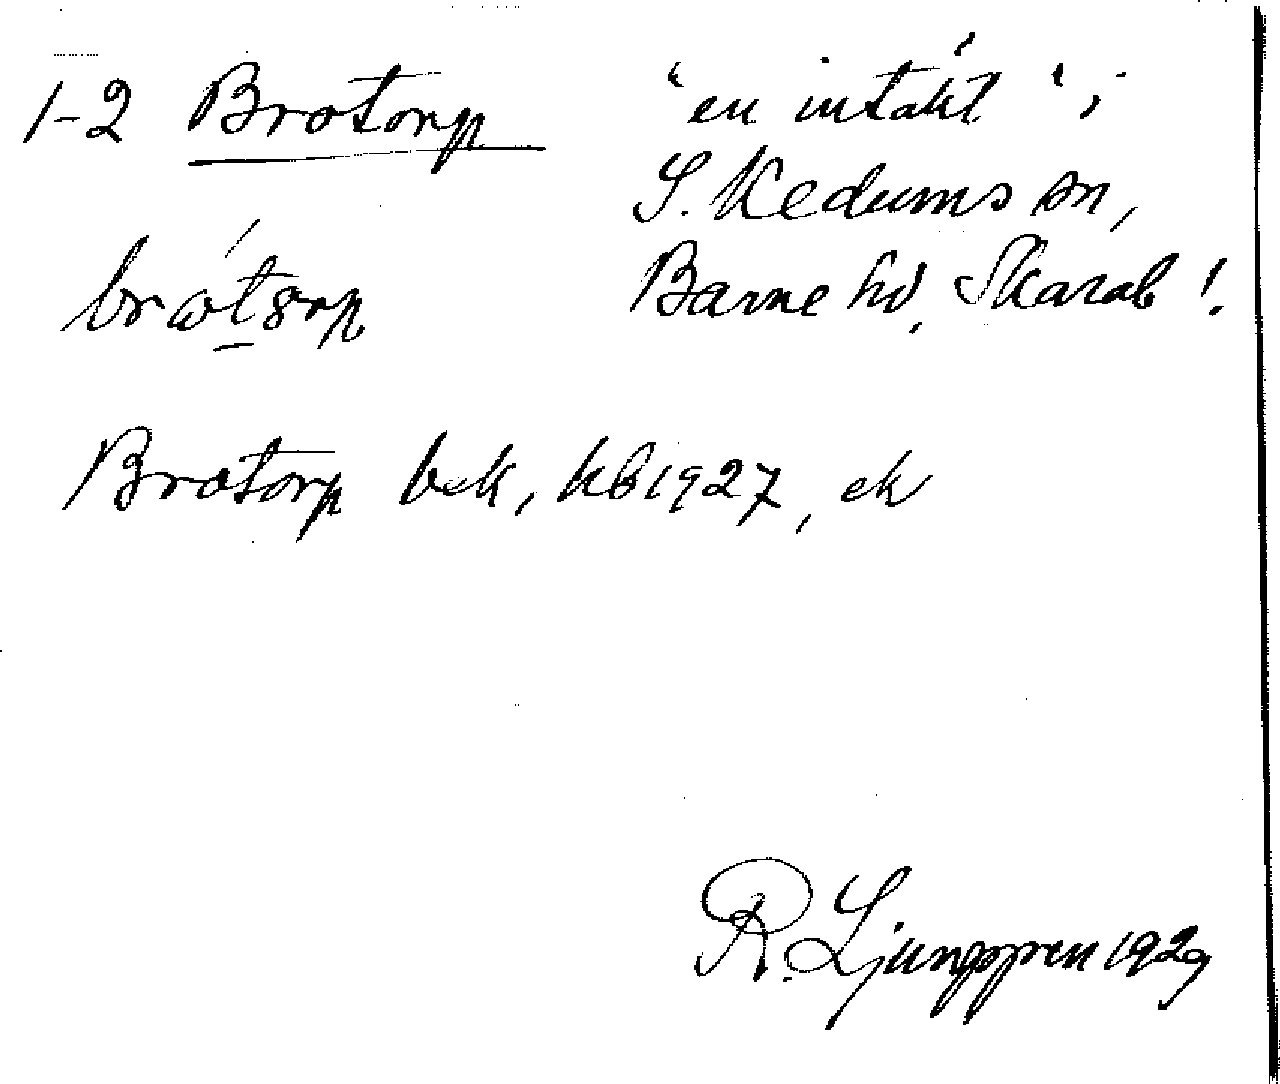 1-2 Brotorp "en intäkt" i
S. Kedums sn,
Barne hd, Skarab !.
Brotorp bek, kb 1927, ek
R. Ljunggren 1929